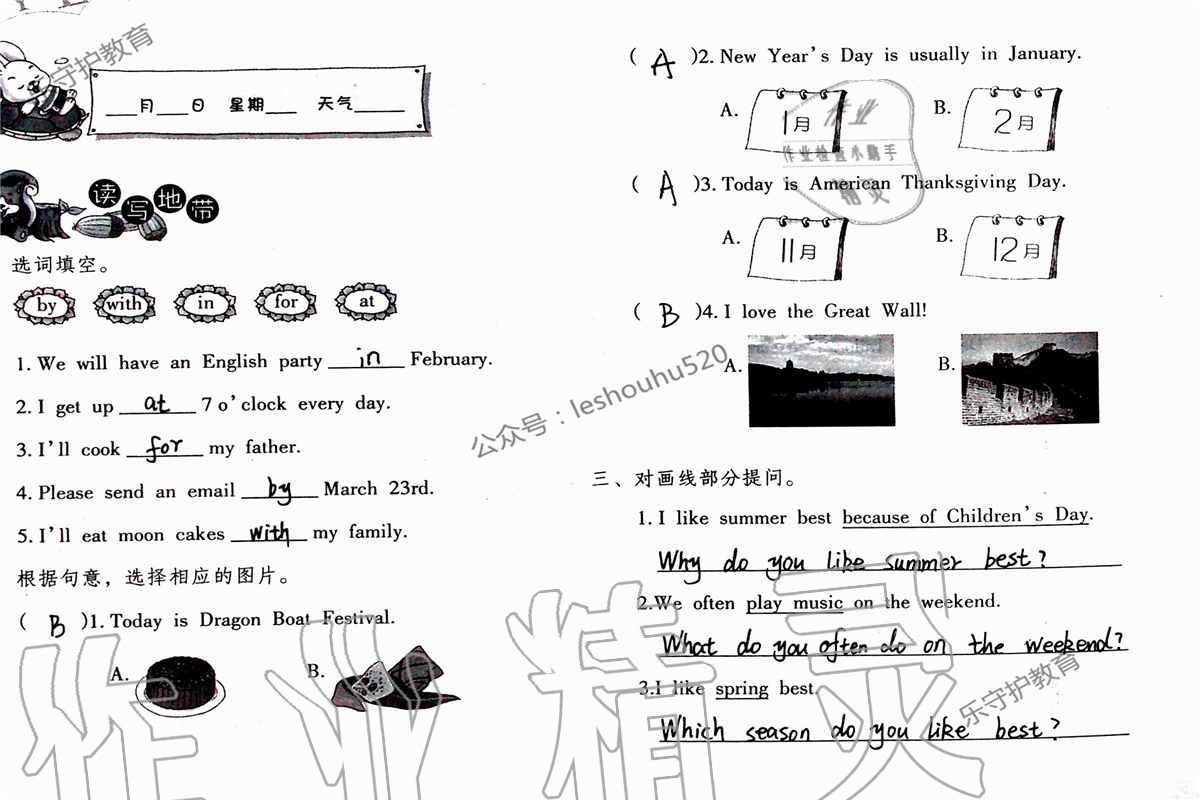 ___月___日 星期___ 天气_____
读写地带
选词填空。
by with in for at
1. We will have an English party in February.
2. I get up at 7 o'clock every day.
3. I'll cook for my father.
4. Please send an email by March 23rd.
5. I'll eat moon cakes with my family.
根据句意，选择相应的图片。
( B )1. Today is Dragon Boat Festival.
A. B.
( A )2. New Year's Day is usually in January.
A. 1月 B. 2月
( A )3. Today is American Thanksgiving Day.
A. 11月 B. 12月
( B )4. I love the Great Wall!
A. B.
三、对画线部分提问。
1. I like summer best because of Children's Day.
Why do you like summer best?
2. We often play music on the weekend.
What do you often do on the weekend?
3. I like spring best.
Which season do you like best?
乐守护教育
公众号：leshouhu520
乐守护教育
作业
作业检查小助手
精灵
作业精灵